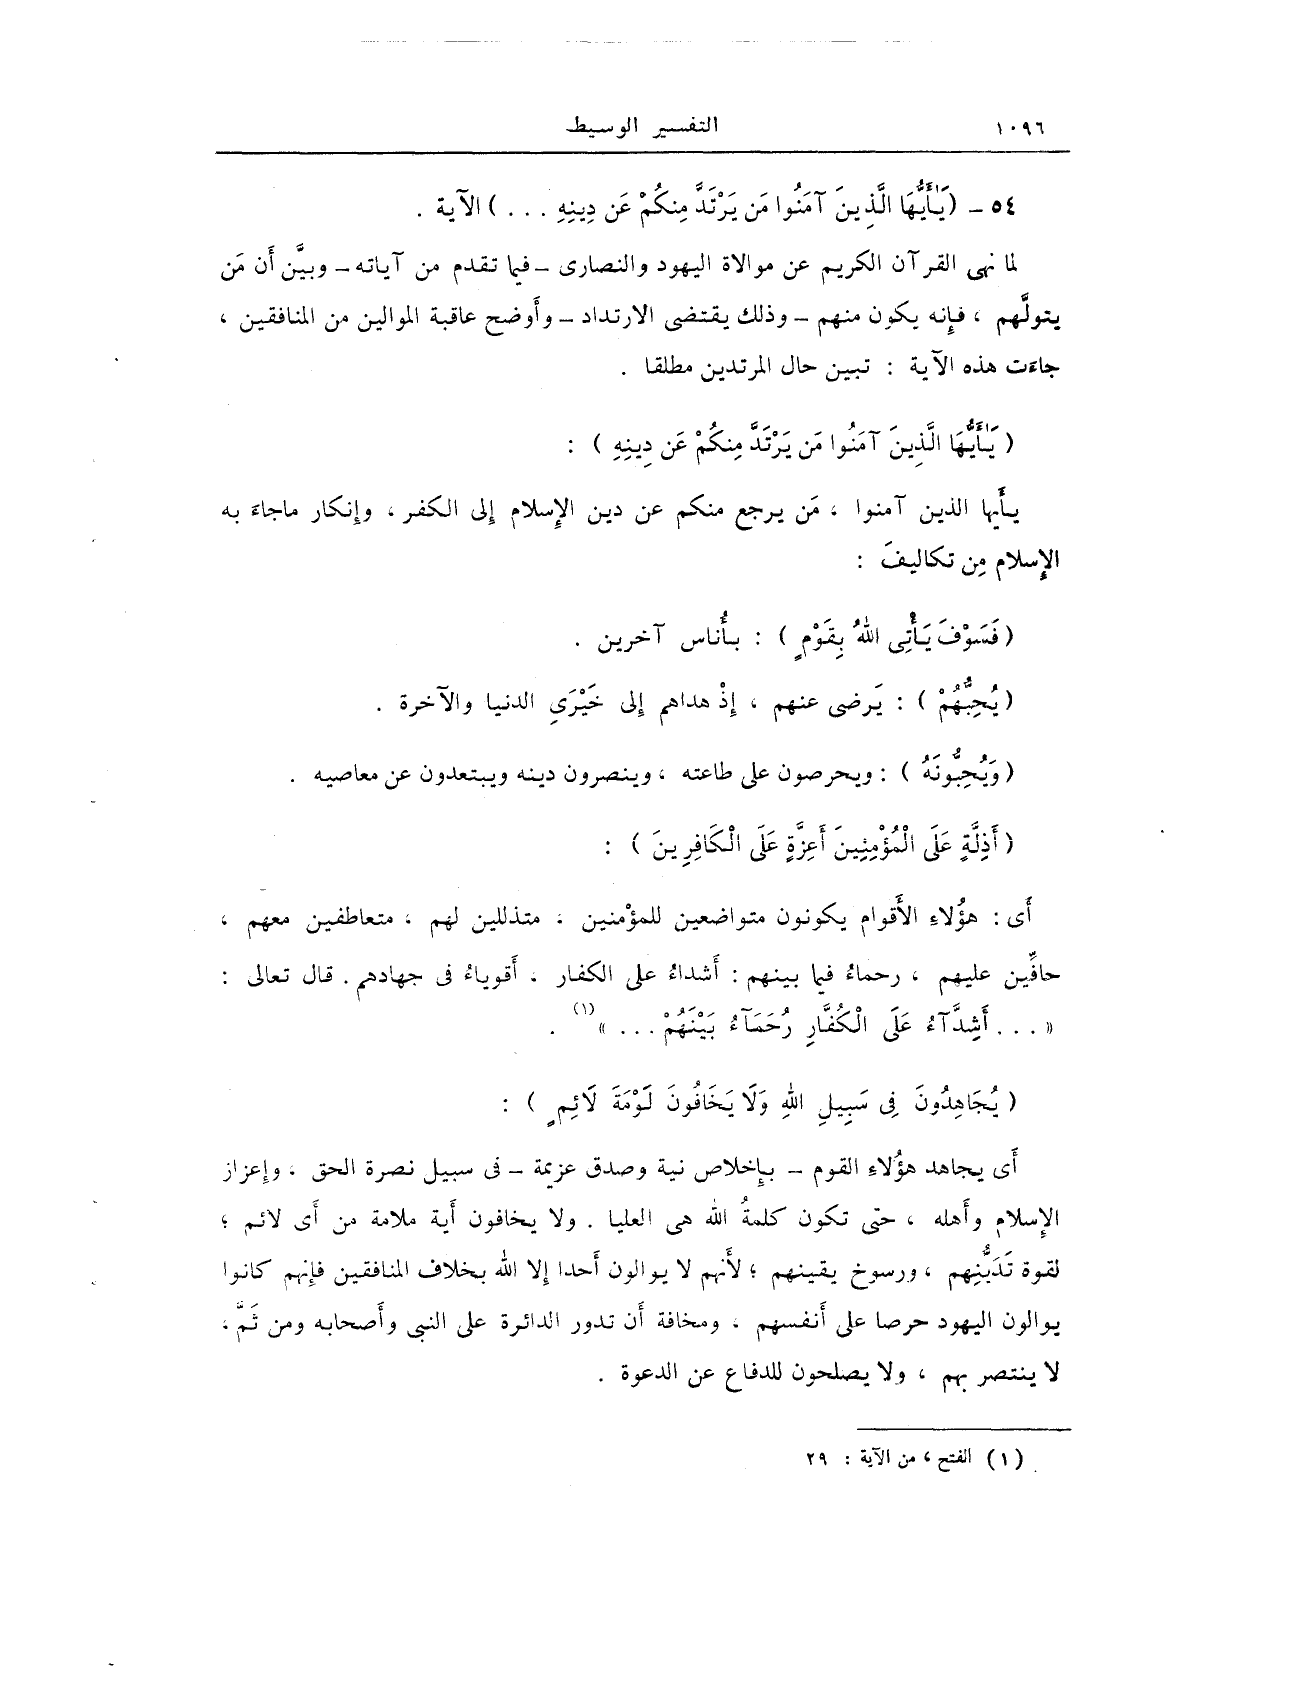 ١٠٩٦ التفسير الوسيط
٥٤ - (يَٰأَيُّهَا الَّذِينَ آمَنُوا مَن يَرْتَدَّ مِنكُمْ عَن دِينِهِ . . . ) الآية .
لما نهى القرآن الكريم عن موالاة اليهود والنصارى - فيما تقدم من آياته - وبيَّن أن مَن
يتولَّهم ، فإنه يكون منهم - وذلك يقتضى الارتداد - وأَوضح عاقبة الموالين من المنافقين ،
جاءَت هذه الآية : تبين حال المرتدين مطلقا .
( يَٰأَيُّهَا الَّذِينَ آمَنُوا مَن يَرْتَدَّ مِنكُمْ عَن دِينِهِ ) :
يأَيها الذين آمنوا ، مَن يرجع منكم عن دين الإِسلام إِلى الكفر ، وإِنكار ماجاءَ به
الإِسلام مِن تكاليفَ :
( فَسَوْفَ يَأْتِى اللهُ بِقَوْمٍ ) : بأُناس آخرين .
( يُحِبُّهُمْ ) : يَرضى عنهم ، إِذْ هداهم إِلى خَيْرَىِ الدنيا والآخرة .
( وَيُحِبُّونَهُ ) : ويحرصون على طاعته ، وينصرون دينه ويبتعدون عن معاصيه .
( أَذِلَّةٍ عَلَى الْمُؤْمِنِينَ أَعِزَّةٍ عَلَى الْكَافِرِينَ ) :
أَى : هؤُلاءِ الأَقوام يكونون متواضعين للمؤْمنين ، متذللين لهم ، متعاطفين معهم ،
حافِّين عليهم ، رحماءُ فيما بينهم : أَشداءُ على الكفار ، أَقوياءُ فى جهادهم . قال تعالى :
« . . . أَشِدَّآءُ عَلَى الْكُفَّارِ رُحَمَآءُ بَيْنَهُمْ . . . »(١) .
( يُجَاهِدُونَ فِى سَبِيلِ اللهِ وَلَا يَخَافُونَ لَوْمَةَ لَائِمٍ ) :
أَى يجاهد هؤُلاءِ القوم - بإِخلاص نية وصدق عزيمة - فى سبيل نصرة الحق ، وإِعزاز
الإِسلام وأَهله ، حتى تكون كلمةُ الله هى العليا . ولا يخافون أَية ملامة من أَى لائم ؛
لقوة تَدَيُّنِهم ، ورسوخ يقينهم ؛ لأَنهم لا يوالون أَحدا إِلا الله بخلاف المنافقين فإِنهم كانوا
يوالون اليهود حرصا على أَنفسهم ، ومخافة أَن تدور الدائرة على النبى وأَصحابه ومن ثَمَّ ،
لا ينتصر بهم ، ولا يصلحون للدفاع عن الدعوة .
(١) الفتح ، من الآية : ٢٩